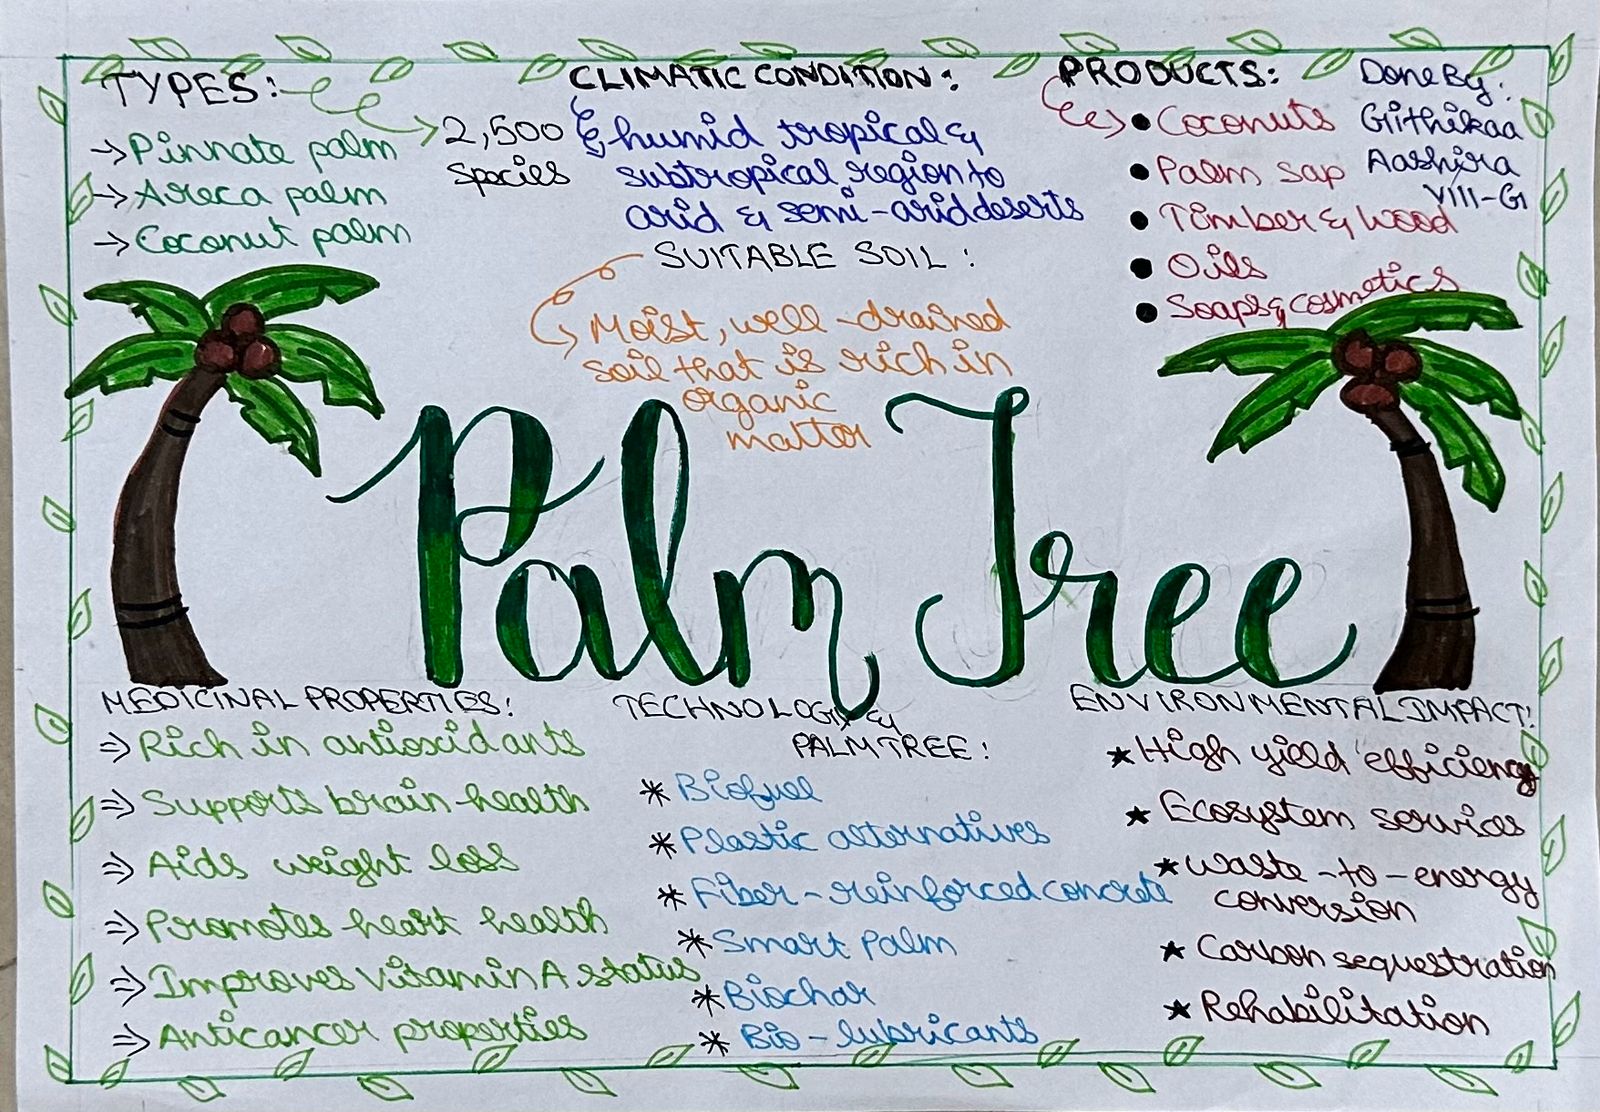 TYPES:
2,500
species
→Pinnate palm
→Areca palm
→Coconut palm
CLIMATIC CONDITION:
humid tropical &
subtropical region to
arid & semi-arid deserts
SUITABLE SOIL:
Moist, well-drained
soil that is rich in
organic
matter
PRODUCTS:
• Coconuts
• Palm sap
• Timber & wood
• Oils
• Soaps & cosmetics
Done By:
Githikaa
Aashira
VIII-G
Palm Tree
MEDICINAL PROPERTIES:
⇒ Rich in antioxidants
⇒ Supports brain health
⇒ Aids weight loss
⇒ Promotes heart health
⇒ Improves vitamin A status
⇒ Anticancer properties
TECHNOLOGY &
PALM TREE:
* Biofuel
* Plastic alternatives
* Fiber-reinforced concrete
* Smart Palm
* Biochar
* Bio-lubricants
ENVIRONMENTAL IMPACT:
★ High yield efficiency
★ Ecosystem services
★ Waste-to-energy
conversion
★ Carbon sequestration
★ Rehabilitation